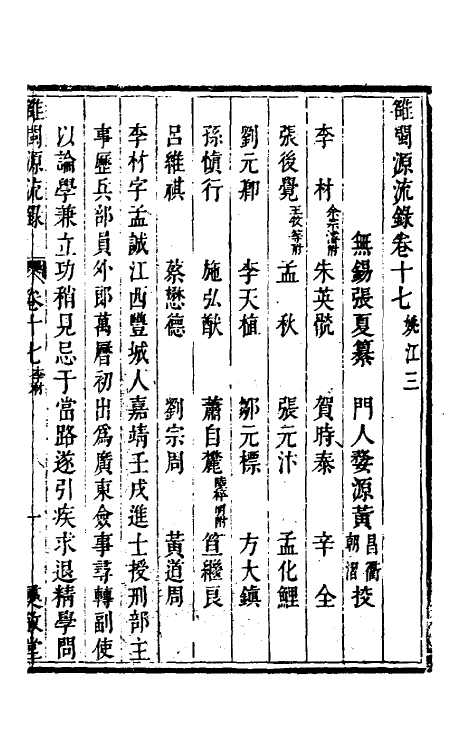 雒閩源流錄卷十七 姚江三
無錫張夏纂 門人婺源黃昌衢朝湝挍
李材 余宗濬附 朱英毿 賀時泰 辛全
張後覺 王汝等附 孟秋 張元汴 孟化鯉
劉元卿 李天植 鄒元標 方大鎮
孫慎行 施弘猷 蕭自麓 陸粹明附 笪繼良
呂維祺 蔡懋德 劉宗周 黃道周
李材字孟誠江西豐城人嘉靖壬戌進士授刑部主
事歷兵部員外郎萬曆初出為廣東僉事尋轉副使
以論學兼立功稍見忌于當路遂引疾求退精學問
雒閩源流錄 卷十七 李材 一